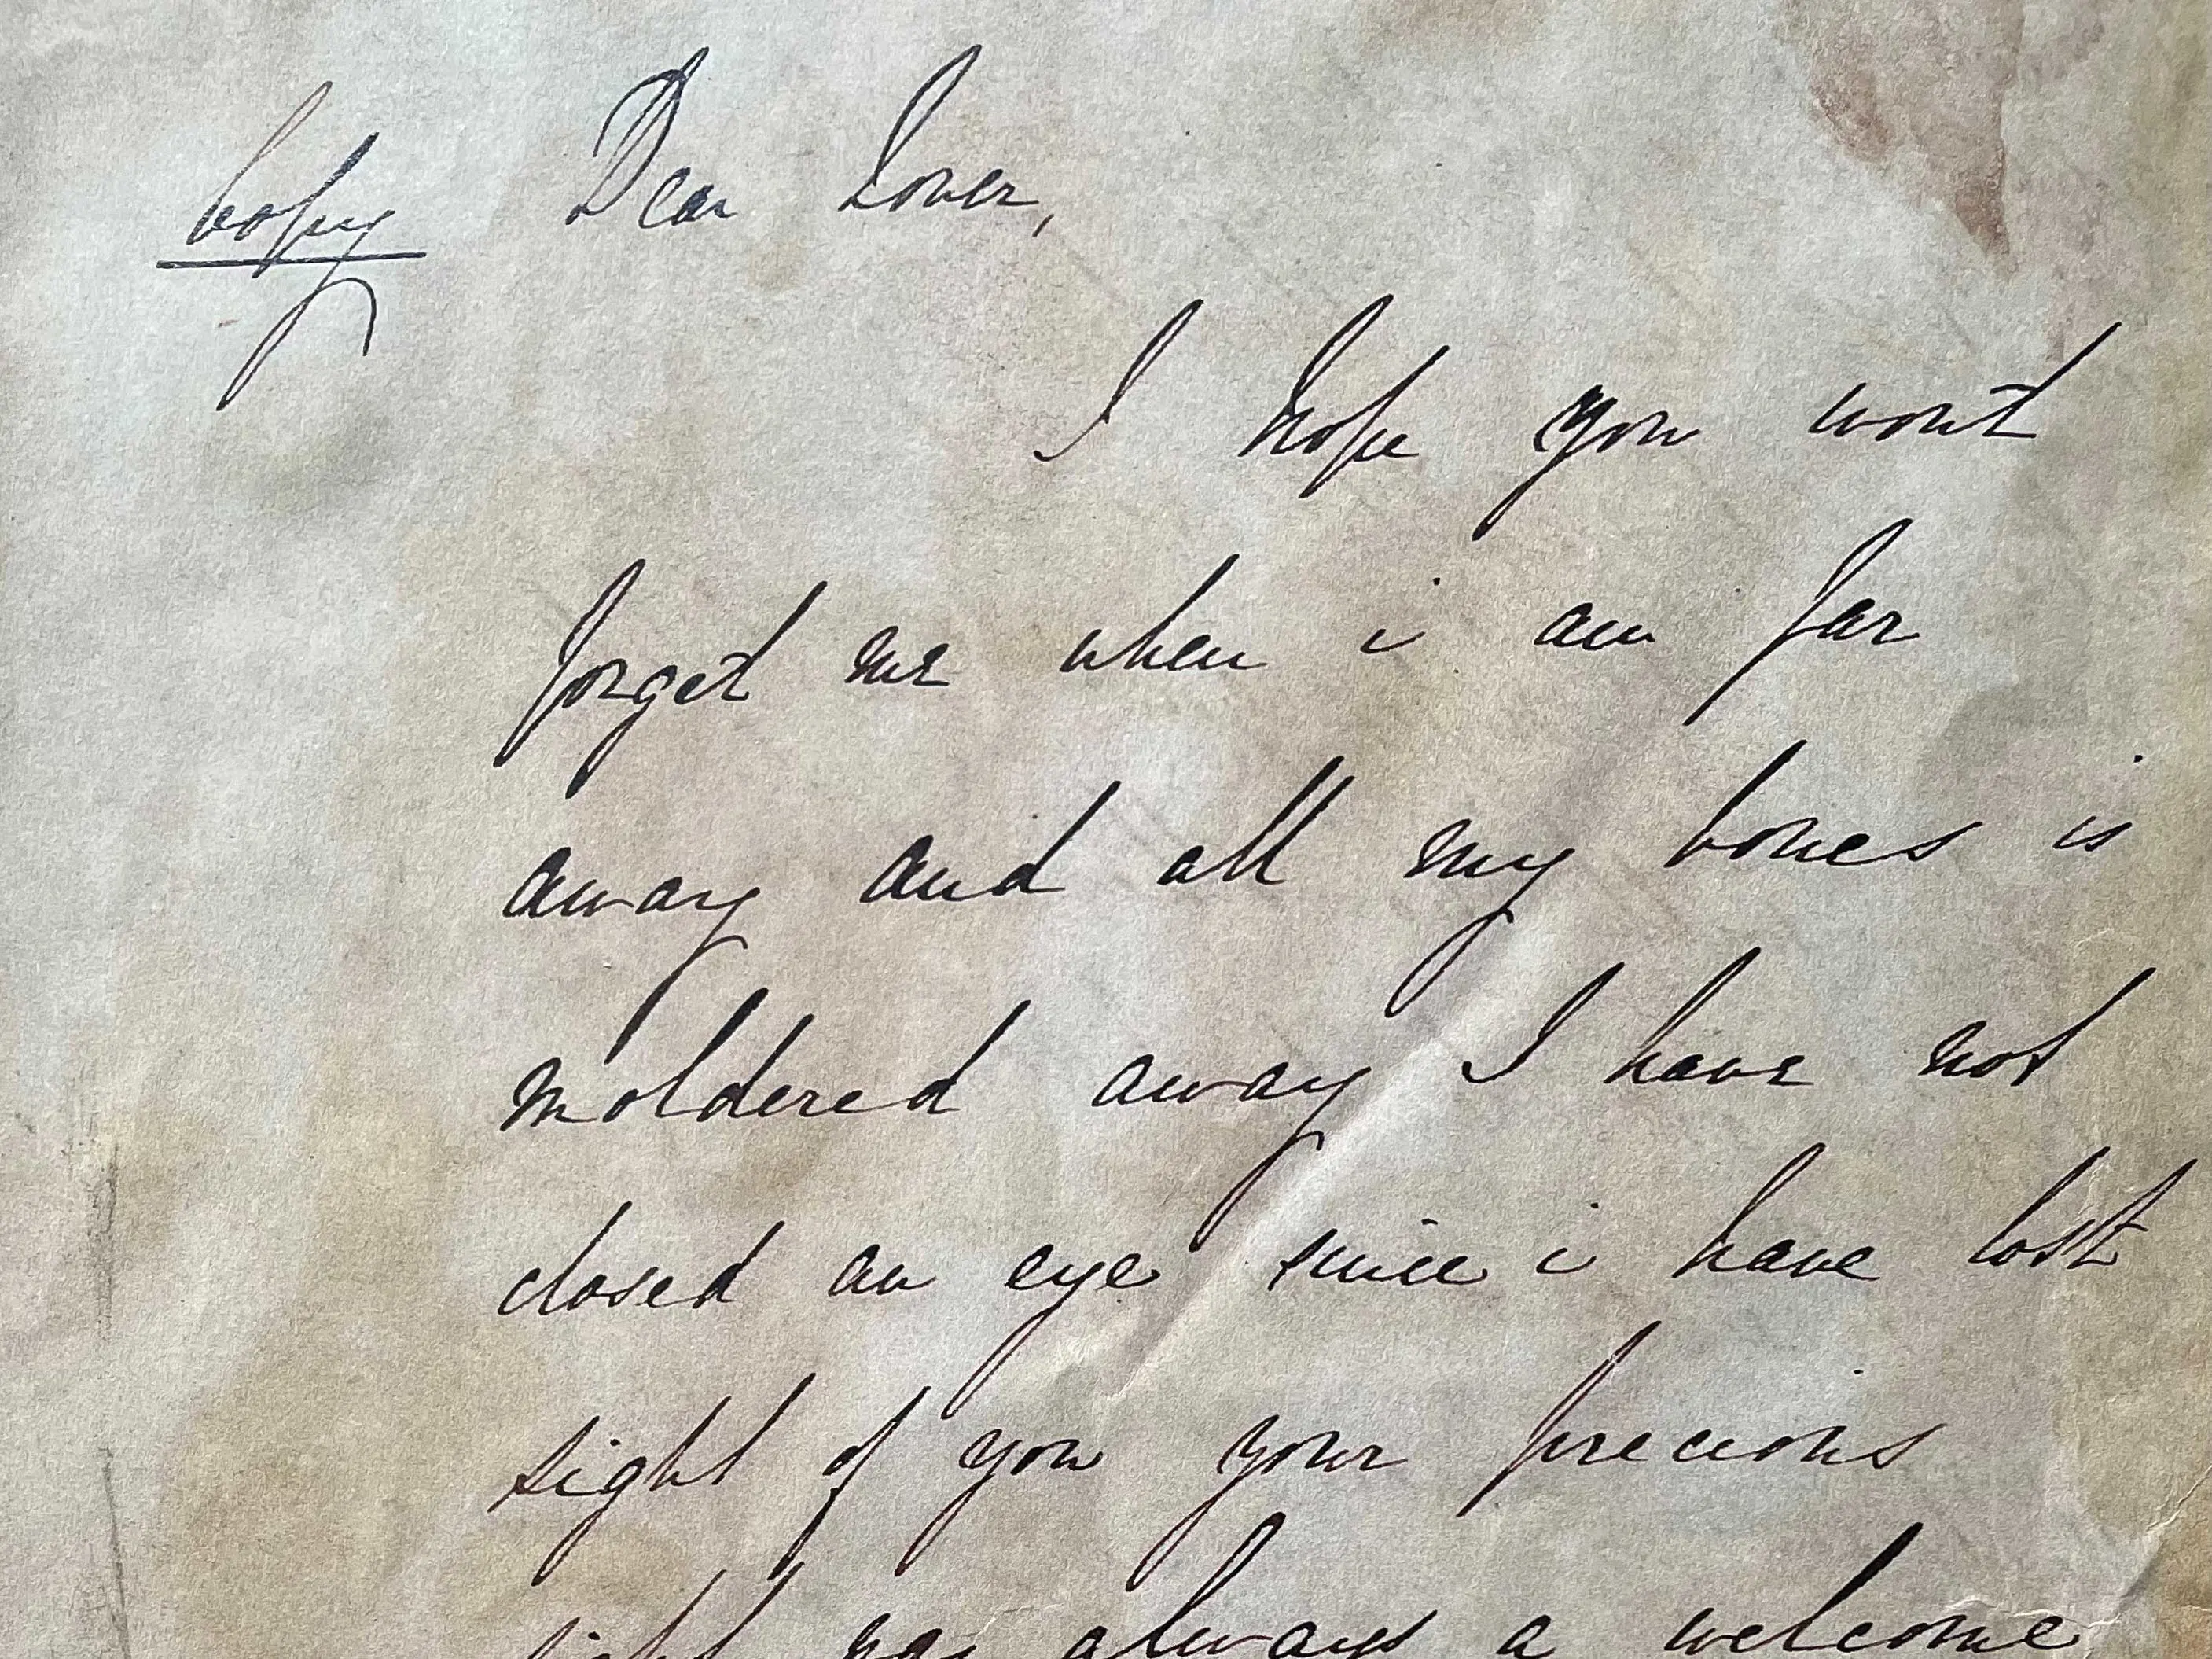 Copy Dear Lover,
I hope you wont
forget me when i am far
away and all my bones is
moldered away I have not
closed an eye since i have lost
sight of you your precious
sight was always a welcome